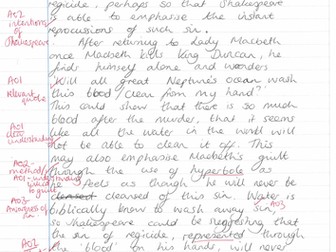 regicide, perhaps so that Shakespeare
AO2
intentions
of
Shakespeare
is able to emphasise the instant
repocussions of such sin.
After returning to Lady Macbeth
once Macbeth kills King Duncan, he
finds himself alone and wonders
AO1
relevant
quote
'Will all great Neptune's ocean wash
this blood clean from my hand?'
This could show that there is so much
AO1
understanding
blood after the murder, that it seems
like all the water in the world will
not be able to clear it off. This
may also emphasise Macbeth's guilt
AO2-
method
AO1-
through the use of hyperbole as
he feels as though he will never be
AO3-
cleansed of this sin. Water is
biblically know to wash away sin,
AO3
so Shakespeare could be suggesting that
the sin of regicide, represented through
the 'blood' on his hands, will never